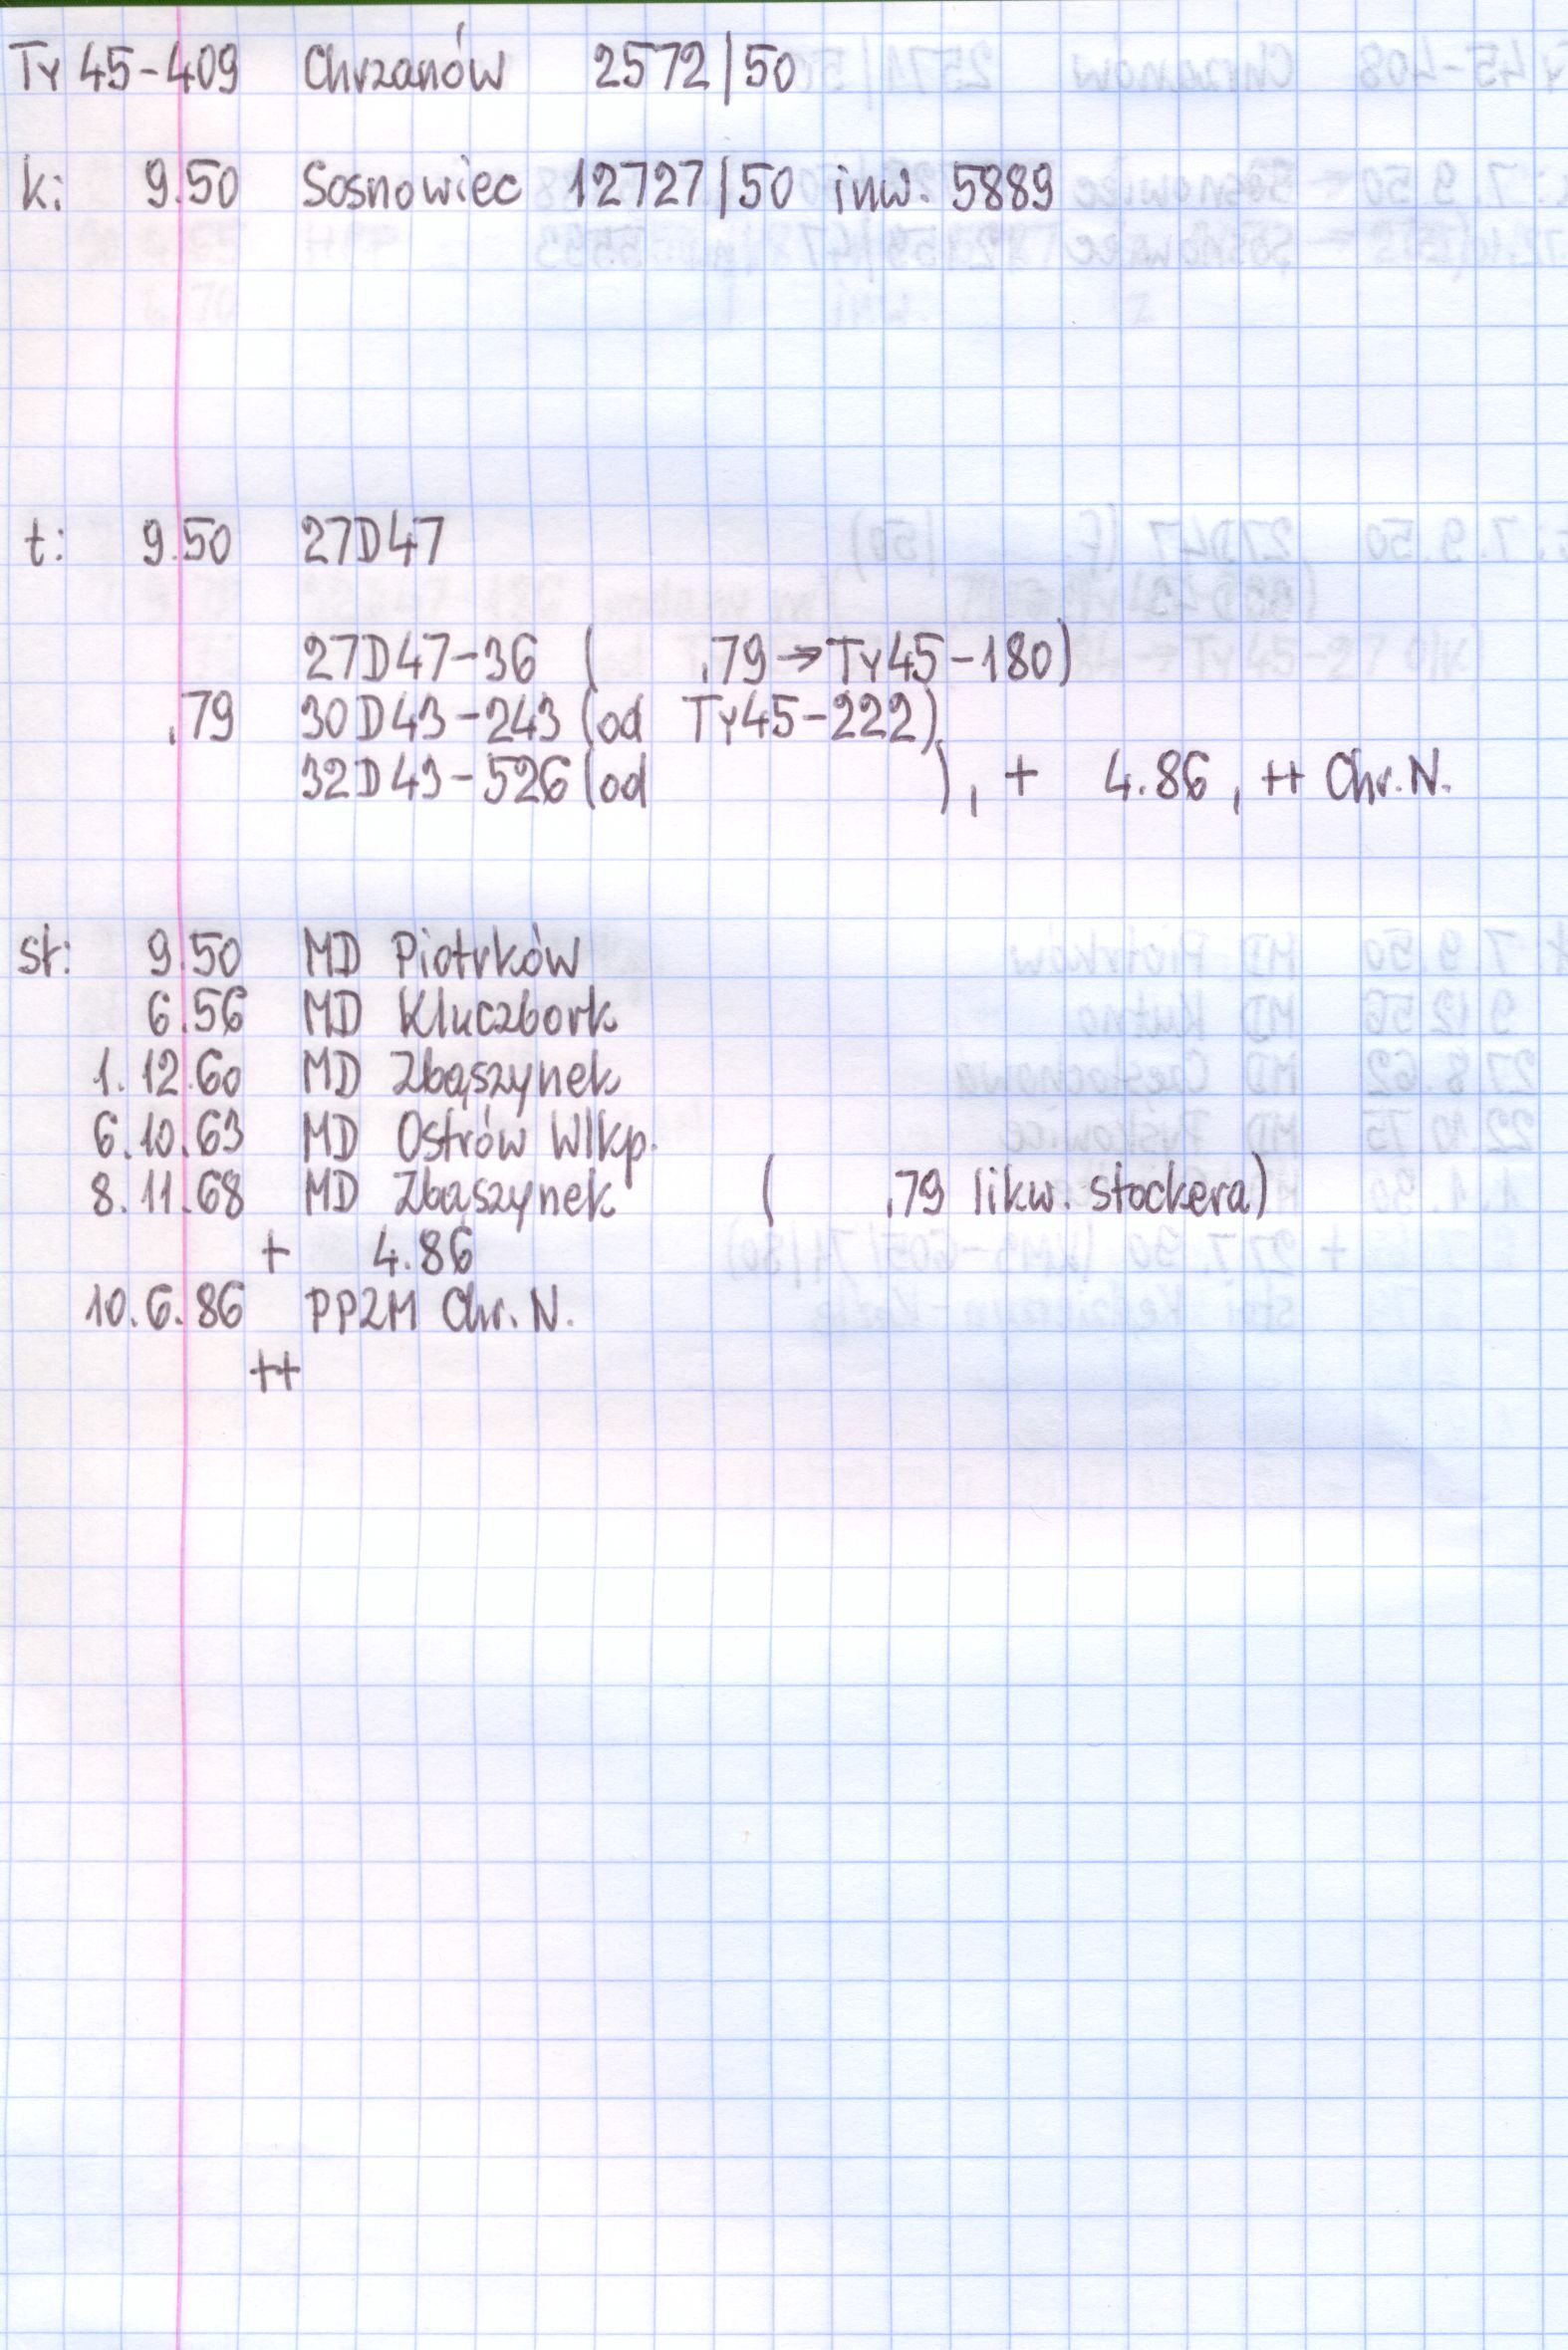 Ty 45-409 Chrzanów 2572/50
k: 9.50 Sosnowiec 12727/50 inw. 5889
t: 9.50 27D47
27D47-36 ( .79 → Ty45-180)
.79 30D43-243 (od Ty45-222)
32D43-526 (od ), + 4.86, ++ Chr. N.
st: 9.50 MD Piotrków
6.56 MD Kluczbork
1.12.60 MD Zbąszynek
6.10.63 MD Ostrów Wlkp.
8.11.68 MD Zbąszynek ( .79 likw. stockera)
+ 4.86
10.6.86 PPZM Chr. N.
++